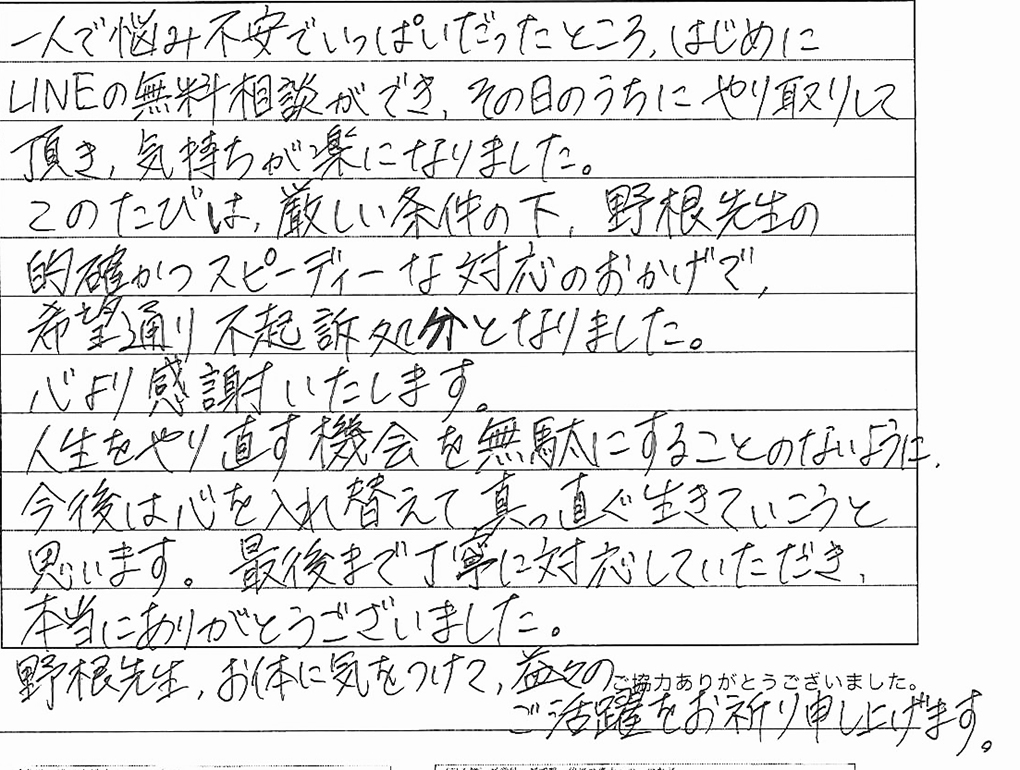 一人で悩み不安でいっぱいだったところ、はじめに
LINEの無料相談ができ、その日のうちにやり取りして
頂き、気持ちが楽になりました。
このたびは、厳しい条件の下、野根先生の
的確かつスピーディーな対応のおかげで、
希望通り不起訴処分となりました。
心より感謝いたします。
人生をやり直す機会を無駄にすることのないように、
今後は心を入れ替えて真っ直ぐ生きていこうと
思います。最後まで丁寧に対応していただき、
本当にありがとうございました。
野根先生、お体に気をつけて、益々の
ご協力ありがとうございました。
ご活躍をお祈り申し上げます。